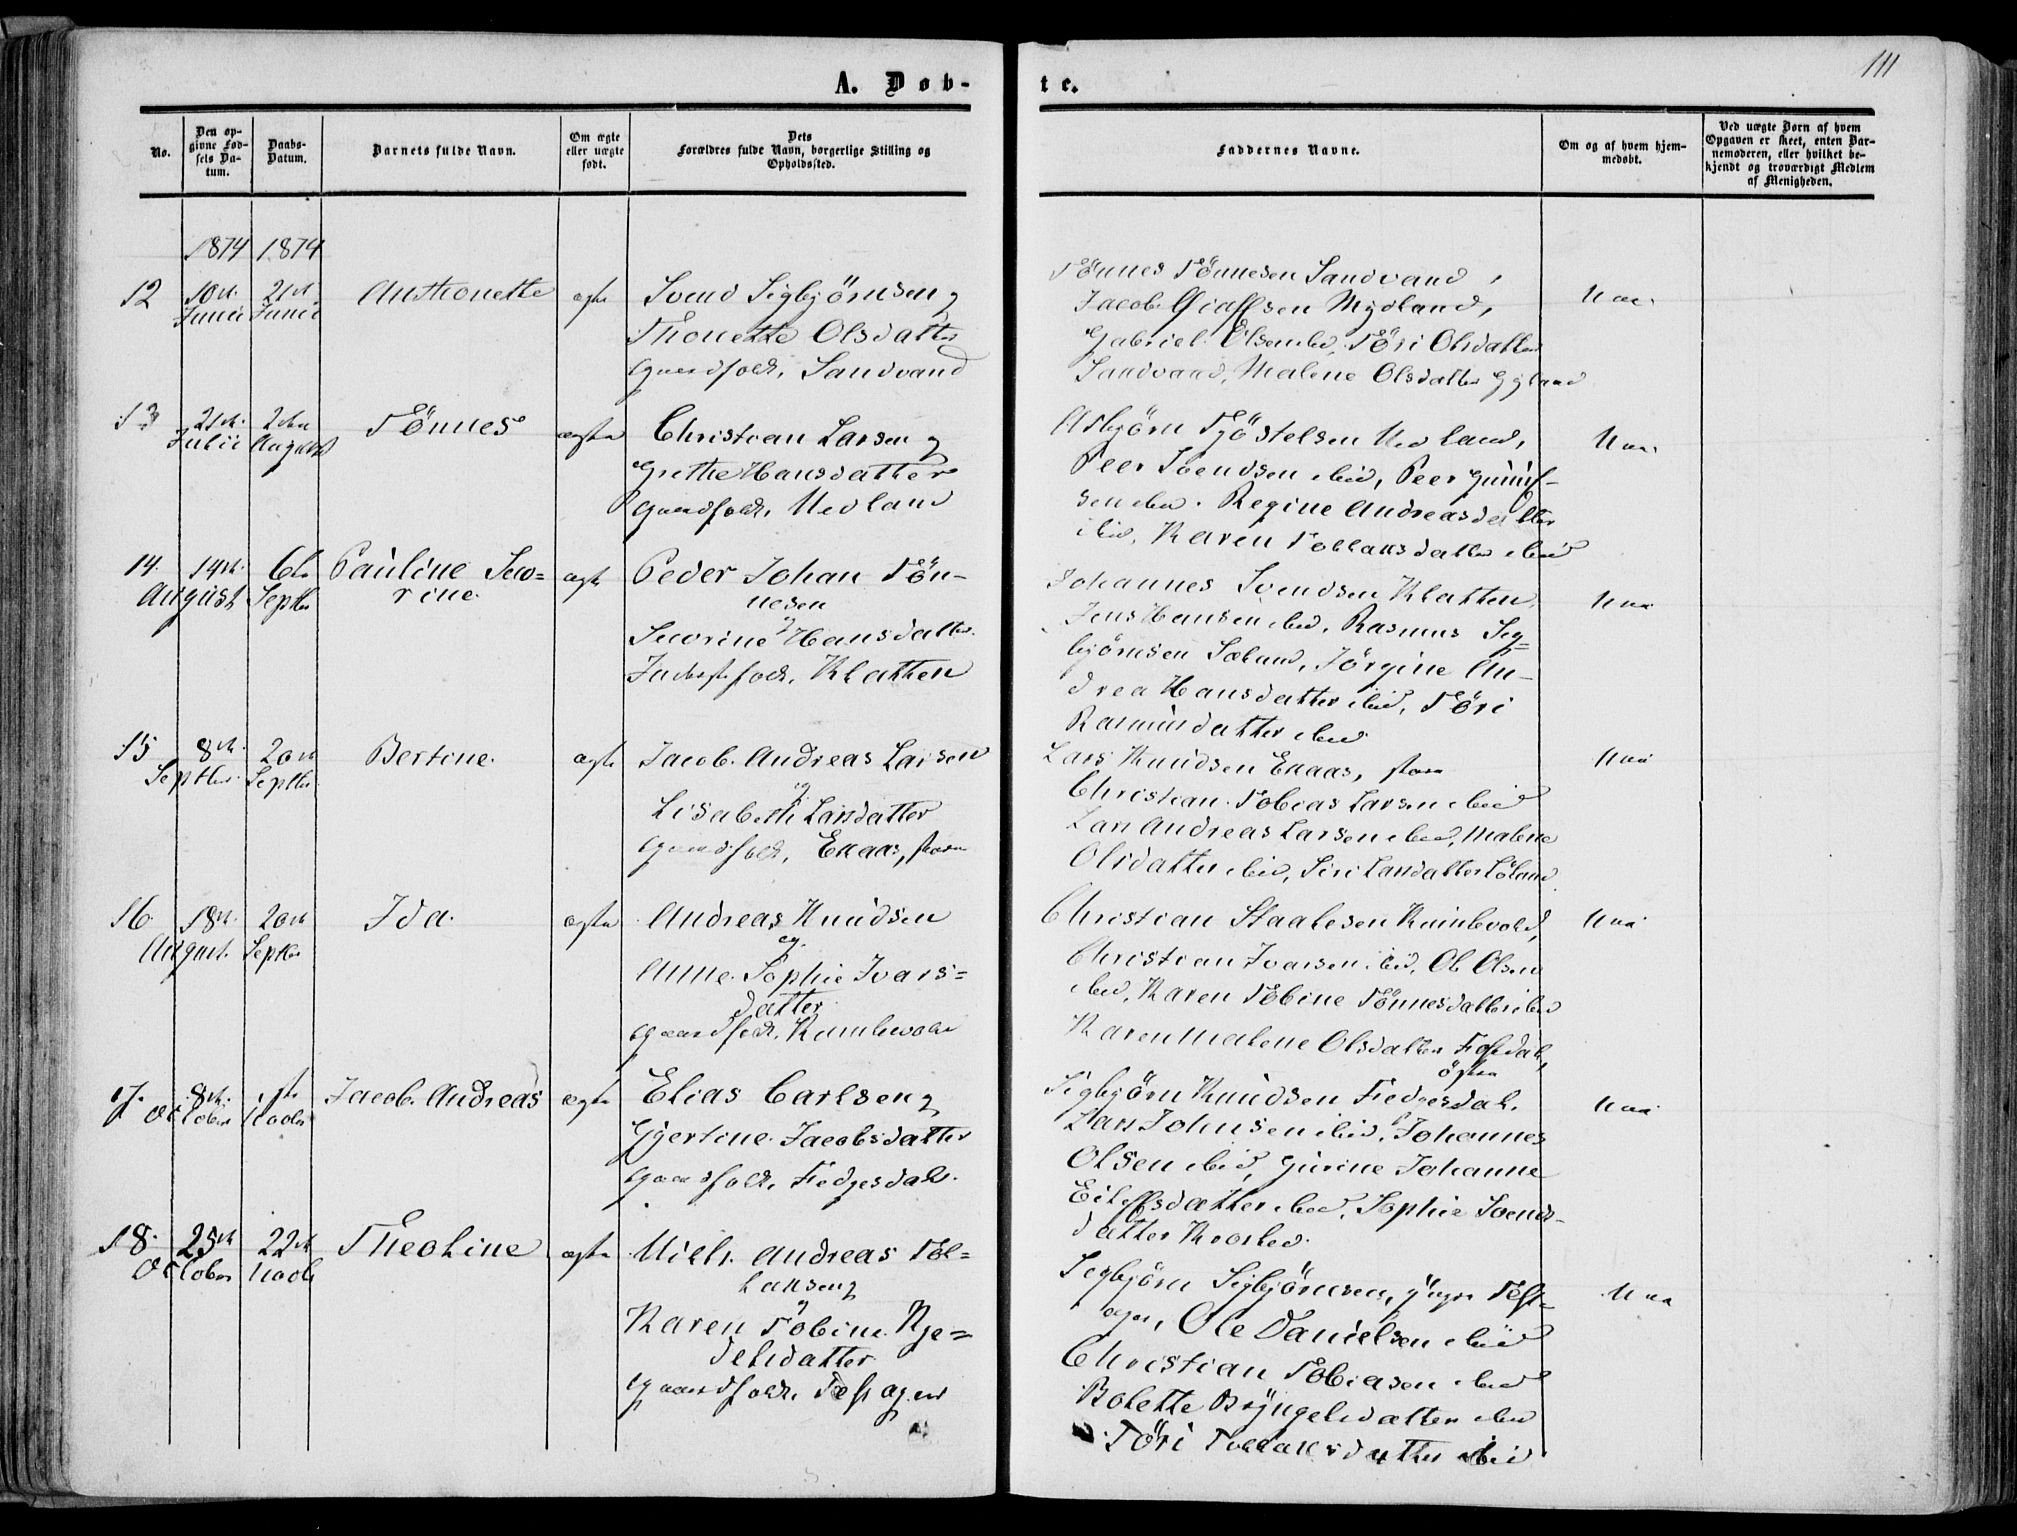 111
A. Døb-
te.
No.
Den op-
givne Fød-
sels Da-
tum.
Daabs-
Datum.
Barnets fulde Navn.
Om ægte
eller uægte
født.
Dets
Forældres fulde Navn, borgerlige Stilling og
Opholdssted.
Faddernes Navne.
Om og af hvem hjem-
medøbt.
Ved uægte Børn af hvem
Opgaven er skeet, enten Bar-
nemoderen, eller hvilket be-
kjendt og troværdigt Medlem
af Menigheden.
1874 1874
12 10de Junii 21de Junii Anthonette ægte
Svend Sigbjörnsen og
Thonette Olsdatter
Gaardfolk, Sandvand
Tönnes Tönnesen Sandvand,
Jacob Mydland,
Gabriel Olsen ibid, Töri Olsdatter
Sandvand, Malene Olsdatter Gyland
Naa.
13 21de Julii 2den August Tönnes ægte
Christian Larsen og
Grethe Hansdatter
Gaardfolk, Nedland
Asbjörn Tjöstelsen Nedland,
Peer Svendsen ibid, Peer
sen ibid. Regine Andreasdatter
ibid, Karen Tollaksdatter ibid
Naa.
14. 14de August 6te Septbr Pauline Seve=
rine.
ægte
Peder Johan Tön-
nesen
og
Severine Hansdatter.
folk, Klatten
Johannes Svendsen Klatten,
Jens Hansen ibid, Rasmus Sig=
björnsen Sæland, Jörgine An-
drea Hansdatter ibid, Töri
Rasmusdatter ibid
Naa
15 8de Septbr. 20de Septbr. Bertine. ægte
Jacob Andreas Larsen
og
Lisabeth Larsdatter
Gaardfolk, Ekaas, store
Lars Knudsen Ekaas, store
Christian Tobias Larsen ibid
Lars Andreas Larsen ibid, Malene
Olsdatter ibid, Siri Larsdatter Löland
Naa
16. 18de August. 20de Septbr Ida. ægte
Andreas Knudsen
og
Anne Sophie Ivars=
datter
Gaardfolk,
Christian Staalesen
Christian Ivarsen ibid, Ole Olsen
ibid, Karen Tobine Tönnesdatter ibid
Karen Malene Olsdatter
östre
Naa
17. 8de October 1ste Novbr Jacob Andreas ægte
Elias Carlsen og
Gjertine Jacobsdatter
Gaardfolk, Fedgesdal.
Sigbjörn Knudsen Fedgesdal.
Lars Johnsen ibid, Johannes
Olsen ibid, Gurine Johanne
Eilefsdatter ibid, Sophie Svends-
datter
Naa
18. 25de October 22de Novbr Theoline ægte
Niels Andreas Tol=
laksen
og
Karen Tobine Kje=
delsdatter
Gaardfolk,
Sigbjörn Sigbjörnsen, yngre
Ole Danielsen ibid
Christian Tobiasen ibid
Bolette Bryngelsdatter ibid
Töri Tollaksdatter ibid
Naa